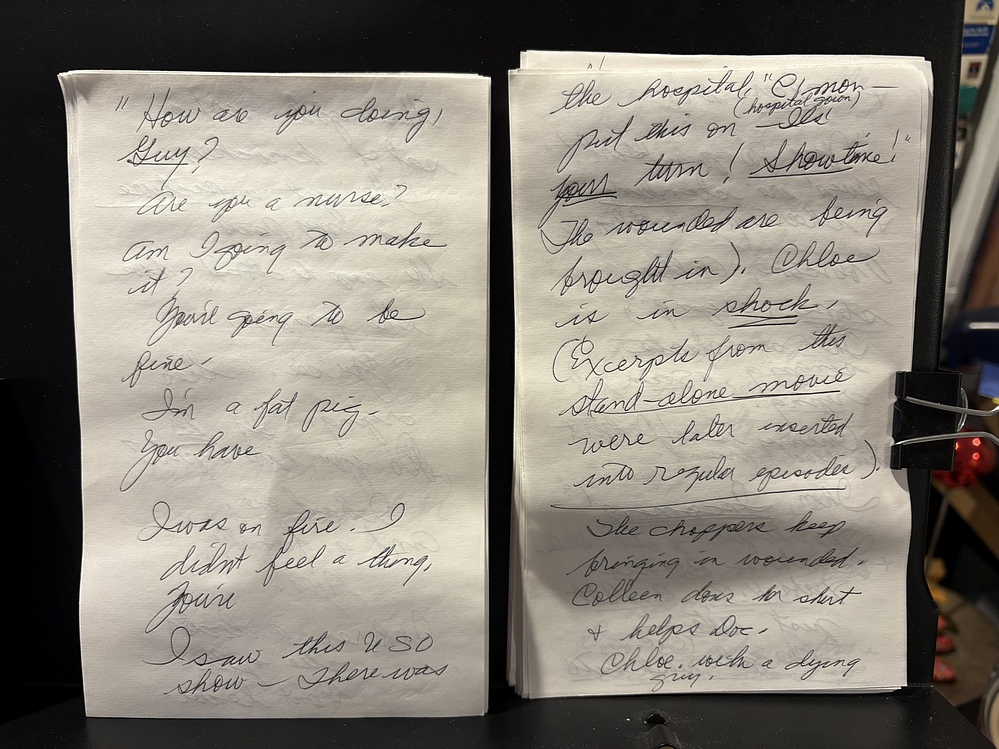 " How are you doing,
Guy?
Are you a nurse?
Am I going to make
it?
You're going to be
fine.
I'm a fat pig.
You have
I was on fire. I
didn't feel a thing.
You're
I saw this USO
show - There was
the hospital, "C'mon -
(hospital gown)
put this on - It's
your turn! Showtime!"
The wounded are being
brought in). Chloe
is in shock.
(Excerpts from this
stand-alone movie
were later inserted
into regular episodes).
The choppers keep
bringing in wounded.
Colleen shirt
+ helps Doc.
Chloe. with a dying
guy.